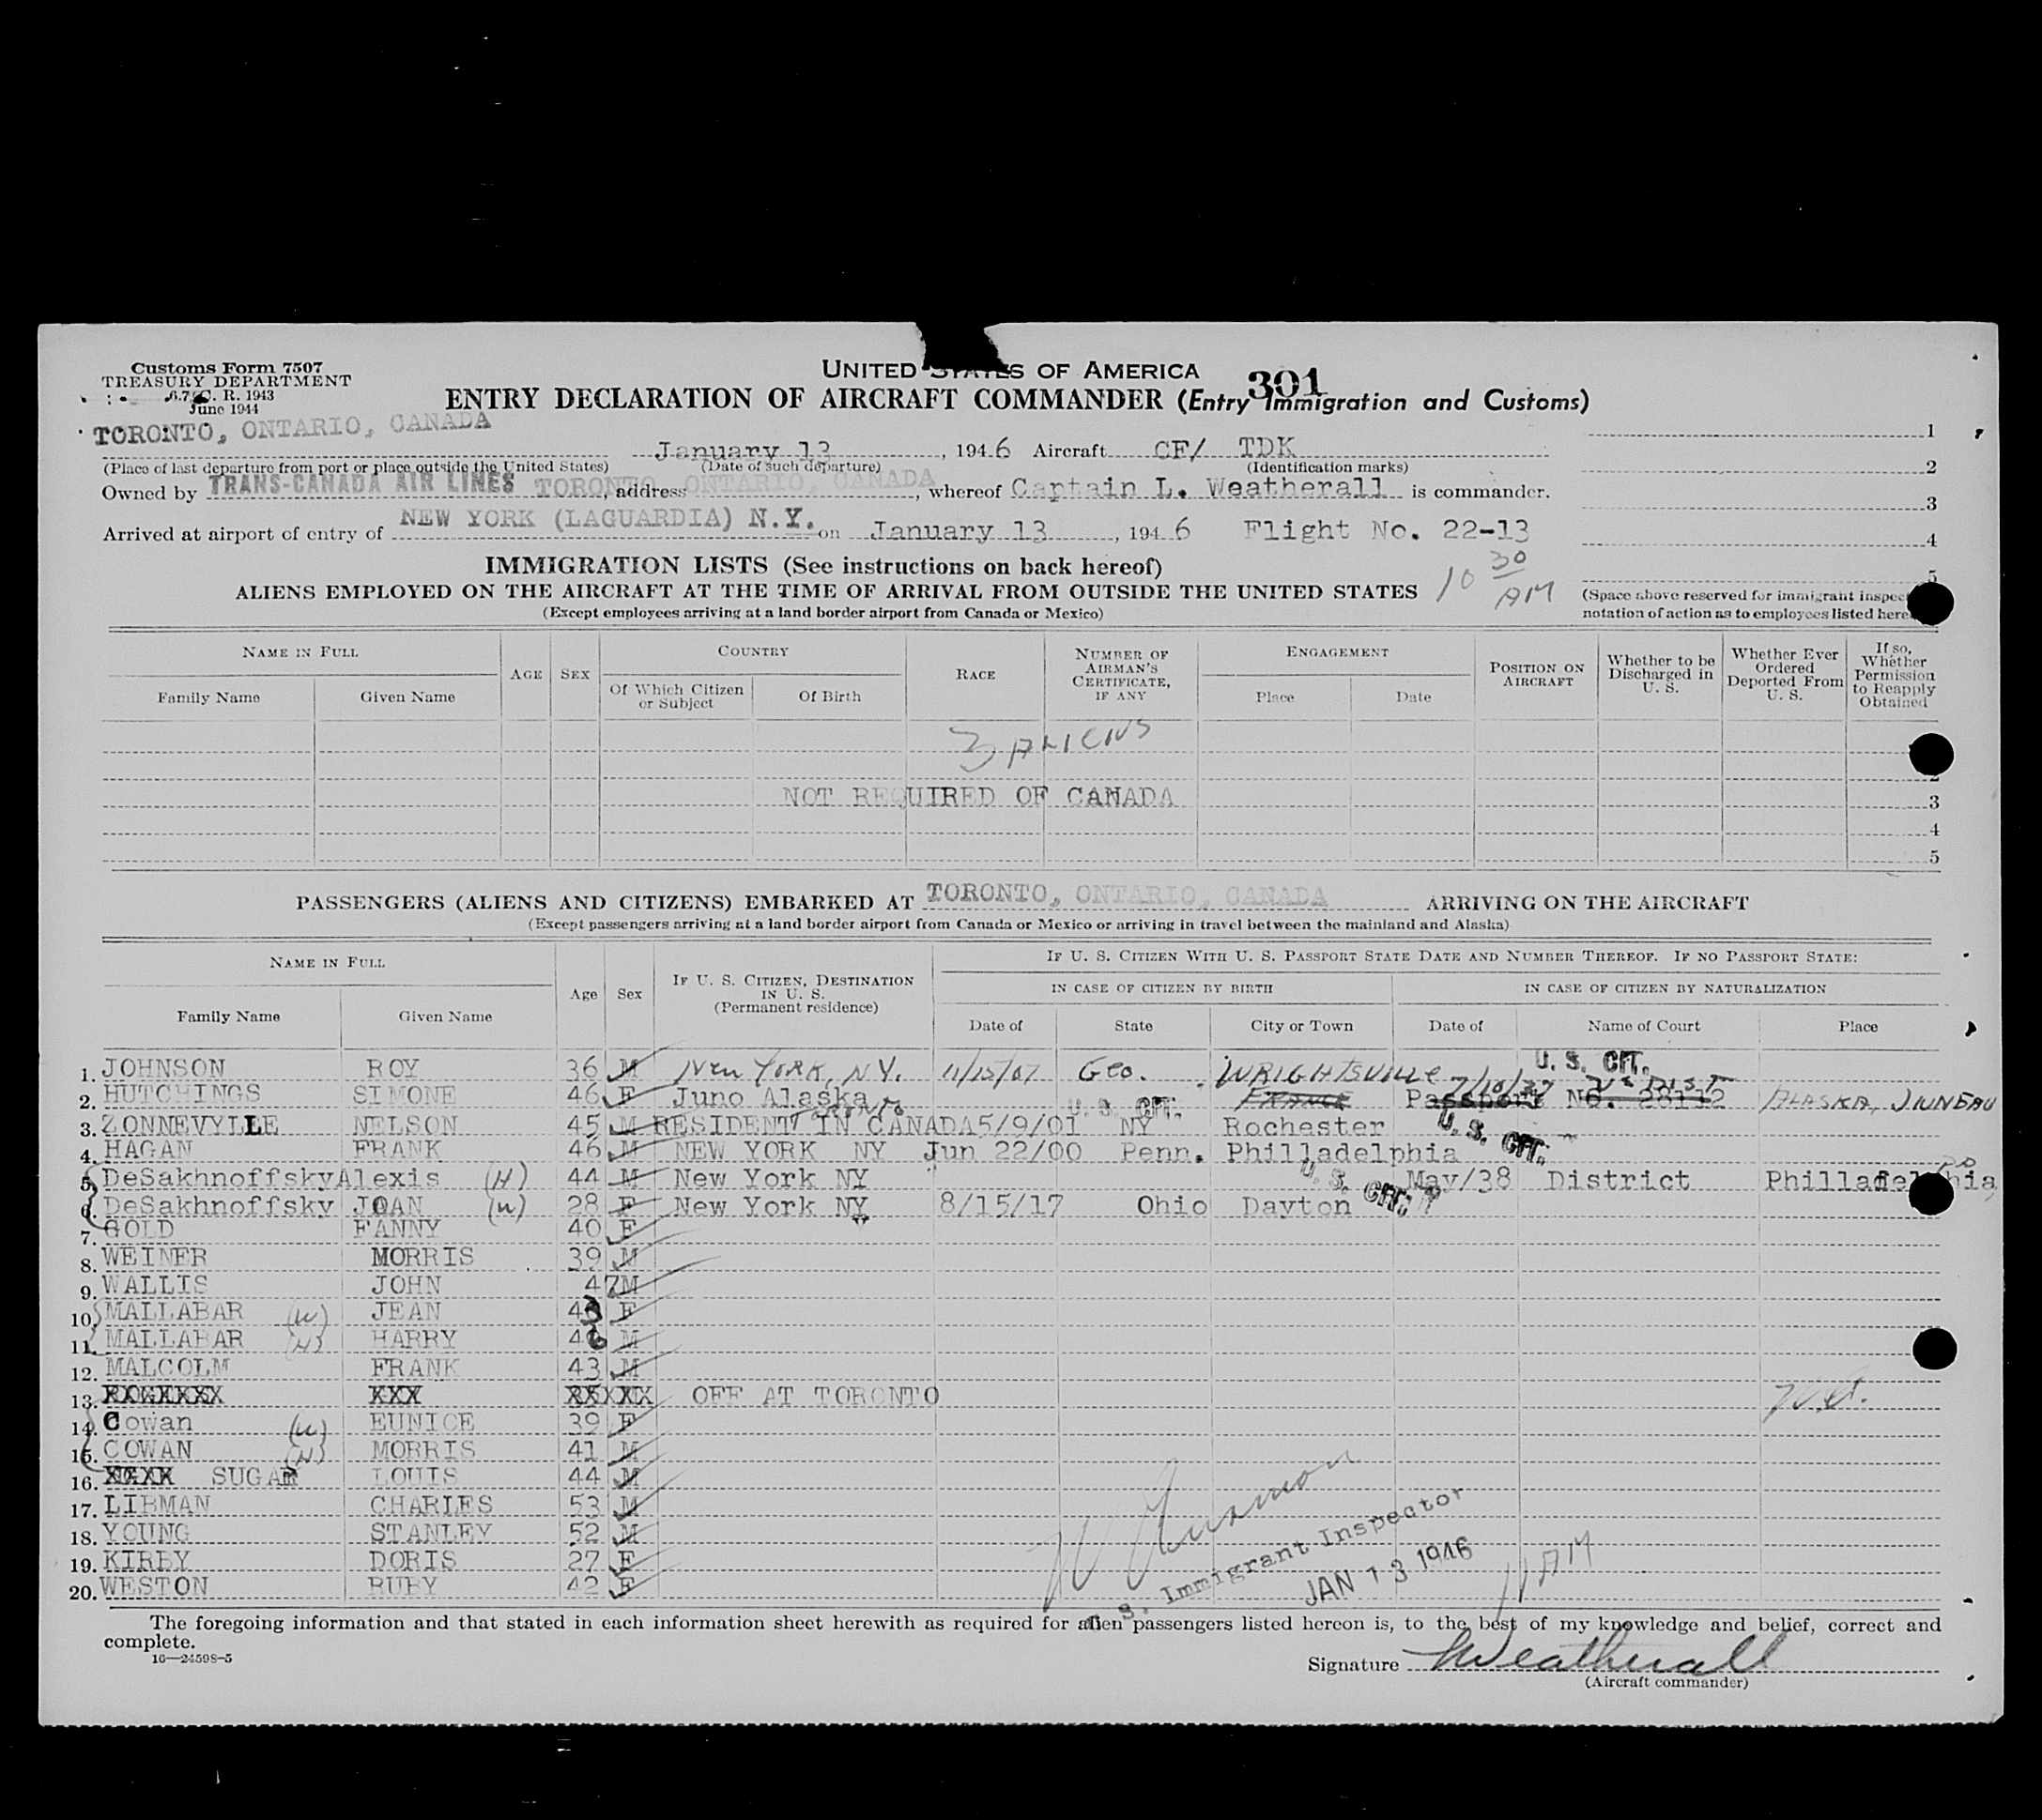 Customs Form 7507
TREASURY DEPARTMENT
June 1944
UNITED STATES OF AMERICA
301
ENTRY DECLARATION OF AIRCRAFT COMMANDER (Entry Immigration and Customs)
TORONTO, ONTARIO, CANADA
January 13, 1946 Aircraft CF/ TDK
(Place of last departure from port or place outside the United States) (Date of such departure) (Identification marks)
Owned by TRANS-CANADA AIR LINES TORONTO, address ONTARIO, CANADA, whereof Captain L. Weatherall is commander.
Arrived at airport of entry of NEW YORK (LAGUARDIA) N.Y. on January 13, 1946 Flight No. 22-13
1
2
3
4
5
IMMIGRATION LISTS (See instructions on back hereof)
10 30 AM
ALIENS EMPLOYED ON THE AIRCRAFT AT THE TIME OF ARRIVAL FROM OUTSIDE THE UNITED STATES
(Except employees arriving at a land border airport from Canada or Mexico)
(Space above reserved for immigrant
notation of action as to employees listed
NAME IN FULL
Family Name Given Name
AGE SEX
COUNTRY
Of Which Citizen or Subject
Of Birth
RACE
NUMBER OF AIRMAN'S CERTIFICATE, IF ANY
ENGAGEMENT
Place Date
POSITION ON AIRCRAFT
Whether to be Discharged in U. S.
Whether Ever Ordered Deported From U. S.
If so, Whether Permission to Reapply Obtained
3 ALIENS
2
NOT REQUIRED OF CANADA
3
4
5
PASSENGERS (ALIENS AND CITIZENS) EMBARKED AT TORONTO, ONTARIO, CANADA ARRIVING ON THE AIRCRAFT
(Except passengers arriving at a land border airport from Canada or Mexico or arriving in travel between the mainland and Alaska)
NAME IN FULL
Family Name Given Name
Age Sex
IF U. S. CITIZEN, DESTINATION IN U. S.
(Permanent residence)
IF U. S. CITIZEN WITH U. S. PASSPORT STATE DATE AND NUMBER THEREOF. IF NO PASSPORT STATE:
IN CASE OF CITIZEN BY BIRTH
Date of State City or Town
IN CASE OF CITIZEN BY NATURALIZATION
Date of Name of Court Place
1. JOHNSON ROY 36 M New YORK, N.Y. 11/15/07 Geo. WRIGHTSVILLE U. S. CIT.
2. HUTCHINGS SIMONE 46 F Juno Alaska FRANCE 7/10/37 US DIST Passport No. 28112 ALASKA, JUNEAU
3. ZONNEVYLLE NELSON 45 M RESIDENT IN CANADA TORONTO 5/9/01 NY U. S. CIT. Rochester
4. HAGAN FRANK 46 M NEW YORK NY Jun 22/00 Penn. Philladelphia U. S. CIT.
5. DeSakhnoffsky Alexis (H) 44 M New York NY May/38 District Philladelphia
6. DeSakhnoffsky JOAN (W) 28 F New York NY 8/15/17 Ohio Dayton U. S. CIT.
7. GOLD FANNY 40 F
8. WEINER MORRIS 39 M
9. WALLIS JOHN 47 M
10. MALLABAR (W) JEAN 43 F
11. MALLABAR (H) HARRY 46 M
12. MALCOLM FRANK 43 M
13. XXXXXXX XXX XX XX OFF AT TORONTO
14. Cowan (W) EUNICE 39 F
15. COWAN (H) MORRIS 41 M
16. XXXX SUGAR LOUIS 44 M
17. LIBMAN CHARLES 53 M
18. YOUNG STANLEY 52 M
19. KIRBY DORIS 27 F
20. WESTON RUBY 42 F
U. S. Immigrant Inspector
JAN 13 1946
11 AM
The foregoing information and that stated in each information sheet herewith as required for alien passengers listed hereon is, to the best of my knowledge and belief, correct and
complete.
16—24598-5
Signature LWeatherall
(Aircraft commander)